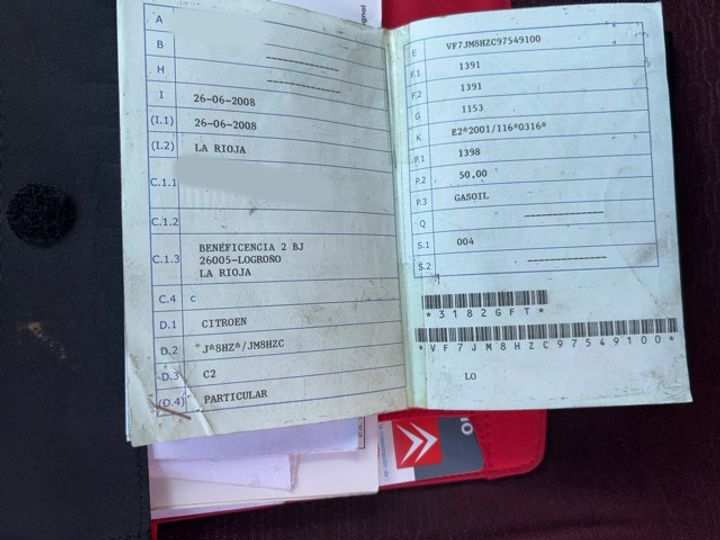 A
B ---------------
H ---------------
I 26-06-2008
(I.1) 26-06-2008
(I.2) LA RIOJA
C.1.1
C.1.2
C.1.3 BENEFICENCIA 2 BJ
26005-LOGROÑO
LA RIOJA
C.4 C
D.1 CITROEN
D.2 *J*8HZ*/JM8HZC
D.3 C2
(D.4) PARTICULAR
E VF7JM8HZC97549100
F.1 1391
F.2 1391
G 1153
K E2*2001/116*0316*
P.1 1398
P.2 50,00
P.3 GASOIL
Q ---------------
S.1 004
S.2 ---------------
*3182GFT*
*VF7JM8HZC97549100*
LO